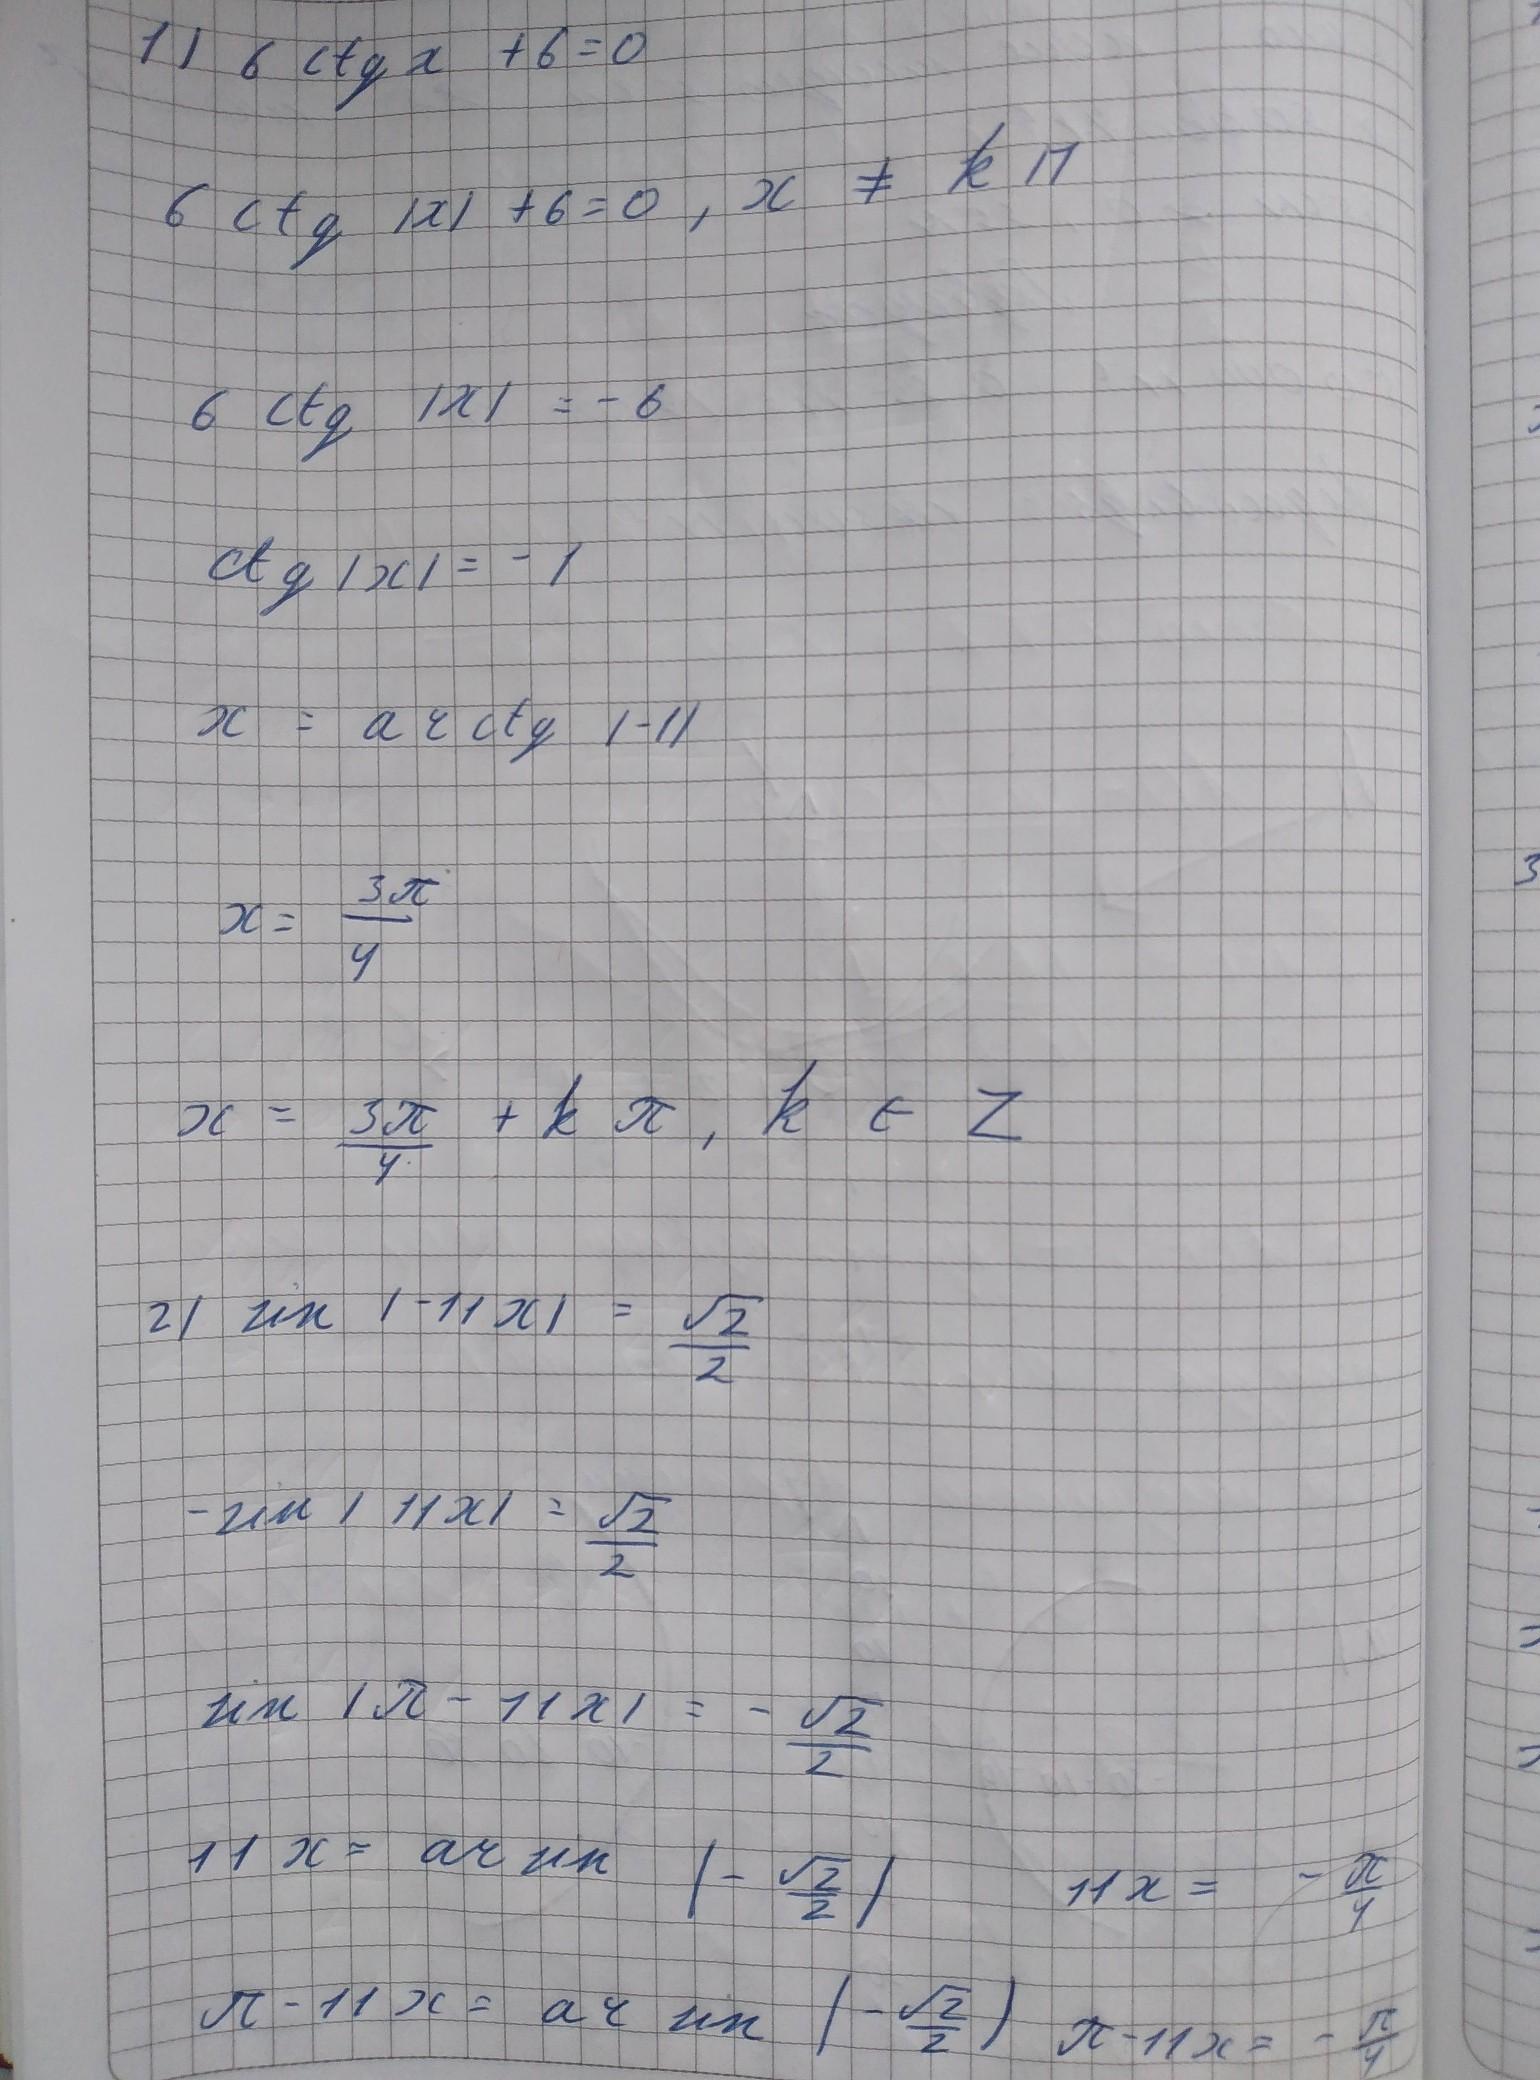 1) 6 ctg x + 6 = 0
6 ctg |x| + 6 = 0, x ≠ k П
6 ctg |x| = - 6
ctg |x| = - 1
x = arctg |-1|
x = 3π/4
x = 3π/4 + k π, k ∈ Z
2) sin |-11x| = √2/2
- sin |11x| = √2/2
sin |π - 11x| = - √2/2
11x = ar sin |- √2/2| 11x = - π/4
π - 11x = ar sin (- √2/2) π - 11x = - π/4